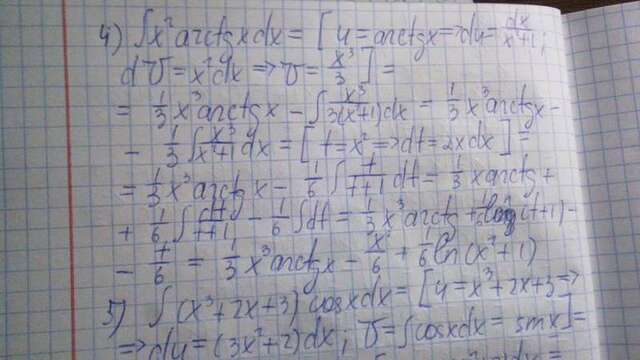 4) ∫x² arctgxdx = [u = arctgx ⇒ du = dx/(x²+1);
dV = x²dx ⇒ V = x³/3] =
= 1/3 x³ arctgx - ∫ x³/(3(x²+1)) dx = 1/3 x³ arctgx -
- 1/3 ∫ x³/(x²+1) dx = [t = x² ⇒ dt = 2xdx] =
= 1/3 x³ arctg x - 1/6 ∫ t/(t+1) dt = 1/3 x arctg +
+ 1/6 ∫ dt/(t+1) - 1/6 ∫dt = 1/3 x³ arctg + (t+1) -
- t/6 = 1/3 x³ arctgx - x²/6 + 1/6 ln(x²+1)
5) ∫(x³+2x+3) cosxdx = [u = x³+2x+3 ⇒
⇒ du = (3x²+2)dx; V = ∫cosxdx = sinx] =